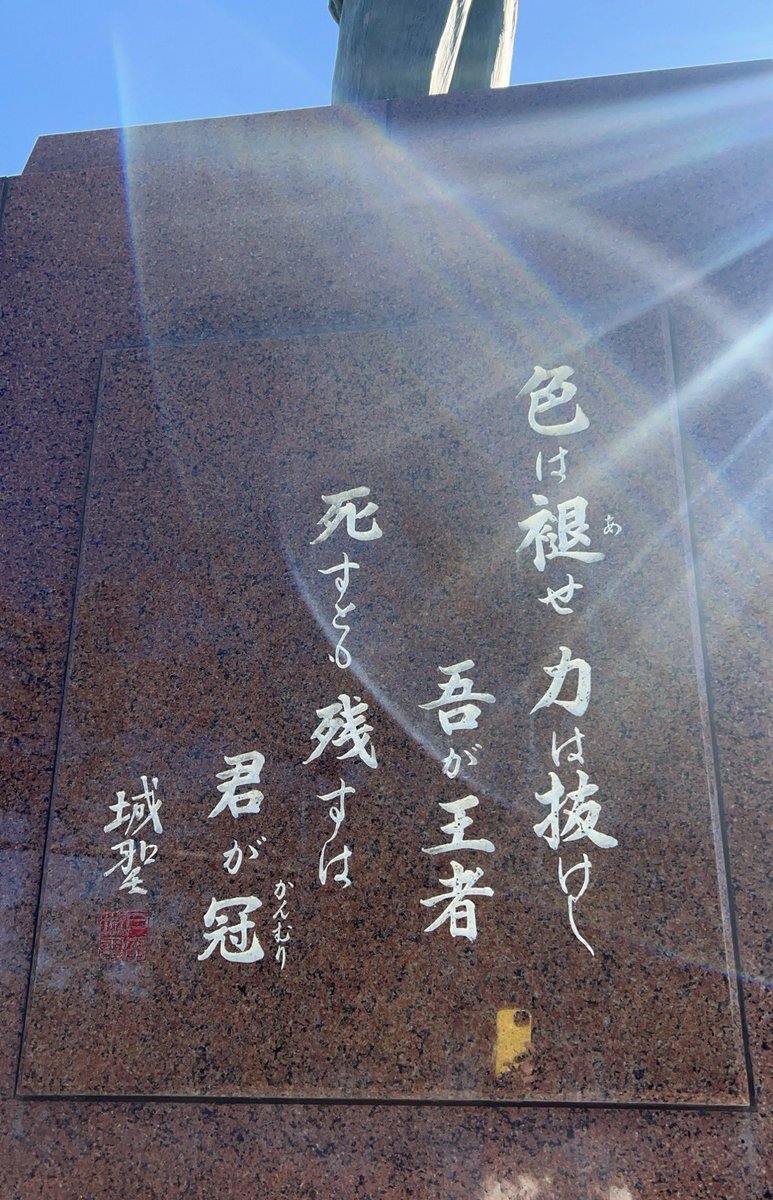 色は褪せ 力は抜けし
あ
吾が王者
死すとも 残すは
君が冠
かんむり
城聖